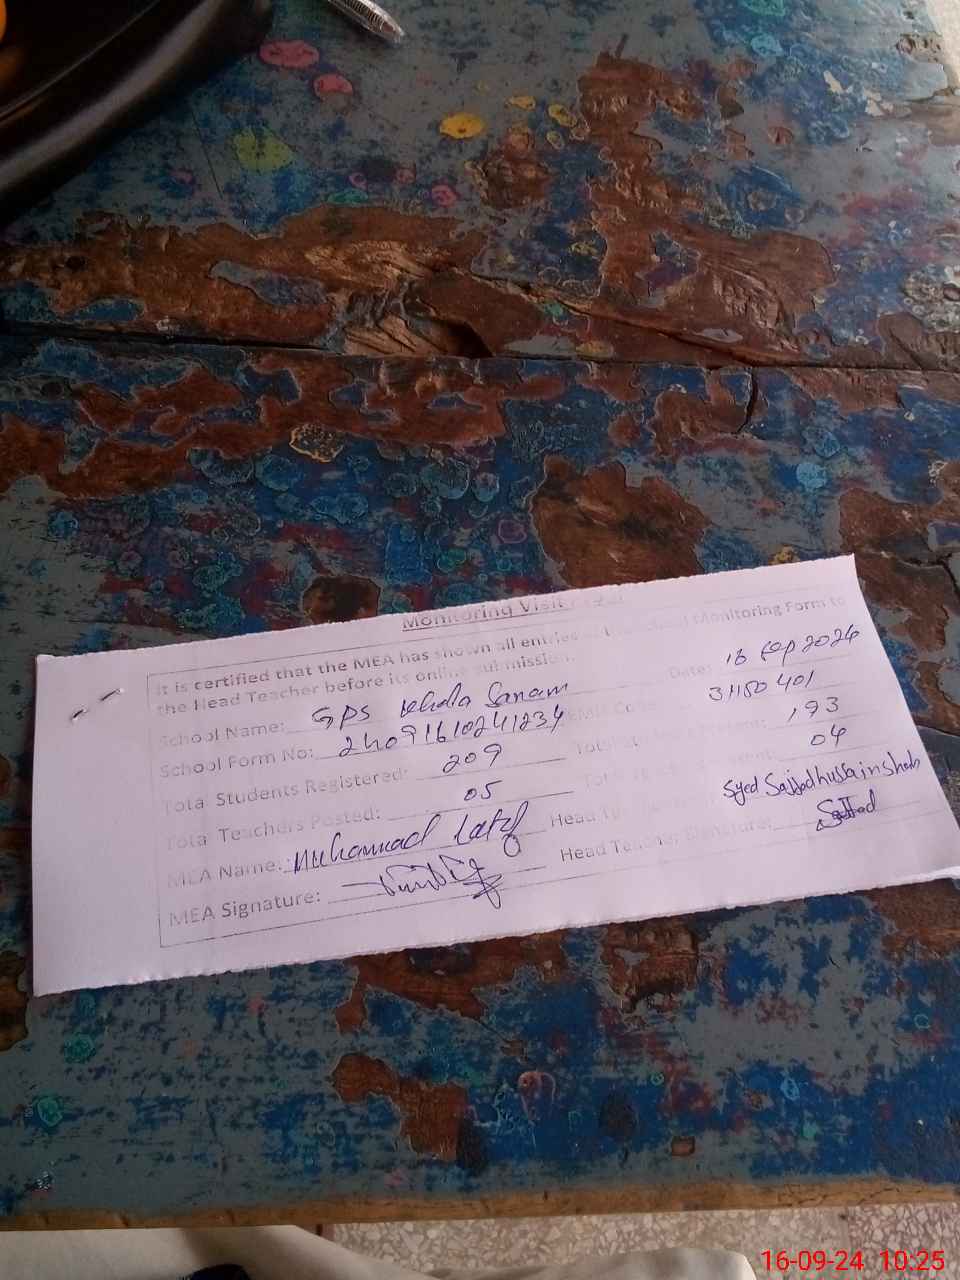 Monitoring Visit
It is certified that the MEA has shown all entries Monitoring Form to
the Head Teacher before its online submission.
School Name: GPS Khola Sanam Date: 16 Sep 2024
School Form No: 24091610241234 EMIS Code: 31150401
Total Students Registered: 209 Present: 193
Total Teachers Posted: 05 04
MEA Name: Muhammad Latif Head Syed Sajjad hussain Shah
MEA Signature: Head Teacher Signature: Sajjad
16-09-24 10:25